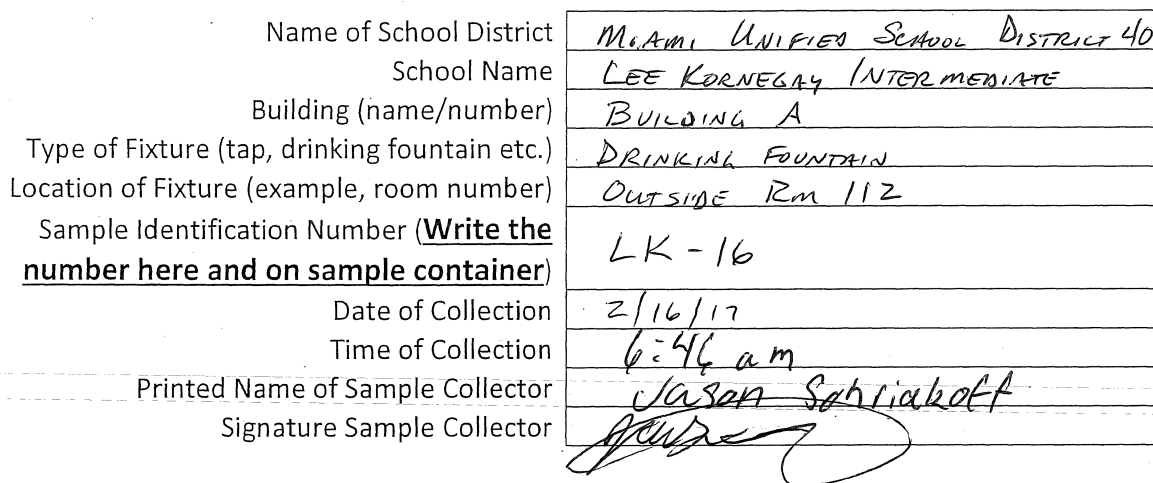 Name of School District MIAMI UNIFIED SCHOOL DISTRICT 40
School Name LEE KORNEGAY INTERMEDIATE
Building (name/number) BUILDING A
Type of Fixture (tap, drinking fountain etc.) DRINKING FOUNTAIN
Location of Fixture (example, room number) OUTSIDE Rm 112
Sample Identification Number (Write the
number here and on sample container) LK-16
Date of Collection 2/16/17
Time of Collection 6:46 am
Printed Name of Sample Collector Jason
Signature Sample Collector